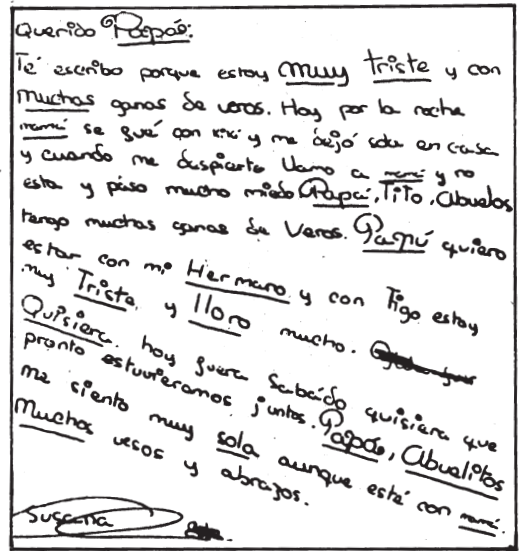 Querido Papá:
Té escribo porque estoy muy triste y con
muchas ganas de veros. Hoy por la noche
mamá se fué con kiki y me dejó sola en casa
y cuando me despierto llamo a mamá y no
esta y paso mucho miedo Papá, Tito, Abuelos
tengo muchas ganas de Veros. Papá quiero
estar con mi Hermano y con Tigo estoy
muy Triste y lloro mucho.
Quisiera hoy fuera Sabado quisiera que
pronto estuvieramos juntos. Papá, Abuelitos
me siento muy sola aunque esté con mamá.
Muchos vesos y abrazos.
Susana